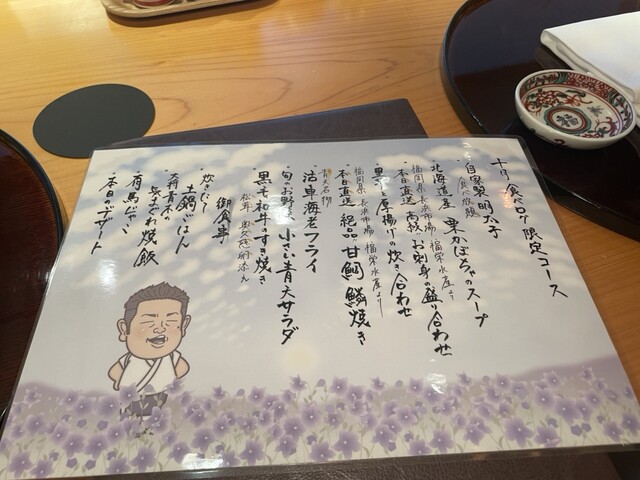 十月 食べログ限定コース
・自家製明太子
食べ放題
・北海道産 栗かぼちゃのスープ
福岡県 長浜市場 福栄水産より
・本日直送 お刺身の盛り合わせ
・黒 と厚揚げの炊き合わせ
福岡県 長浜市場 福栄水産より
・本日直送 絶品 甘鯛鱗焼き
青天名物
・活車海老フライ
・旬のお野菜 小さい青天サラダ
・黒毛和牛のすき焼き
松茸 奥久慈卵添え
御食事
・炊きたて
土鍋ごはん
・ 焼飯
・本日のデザート